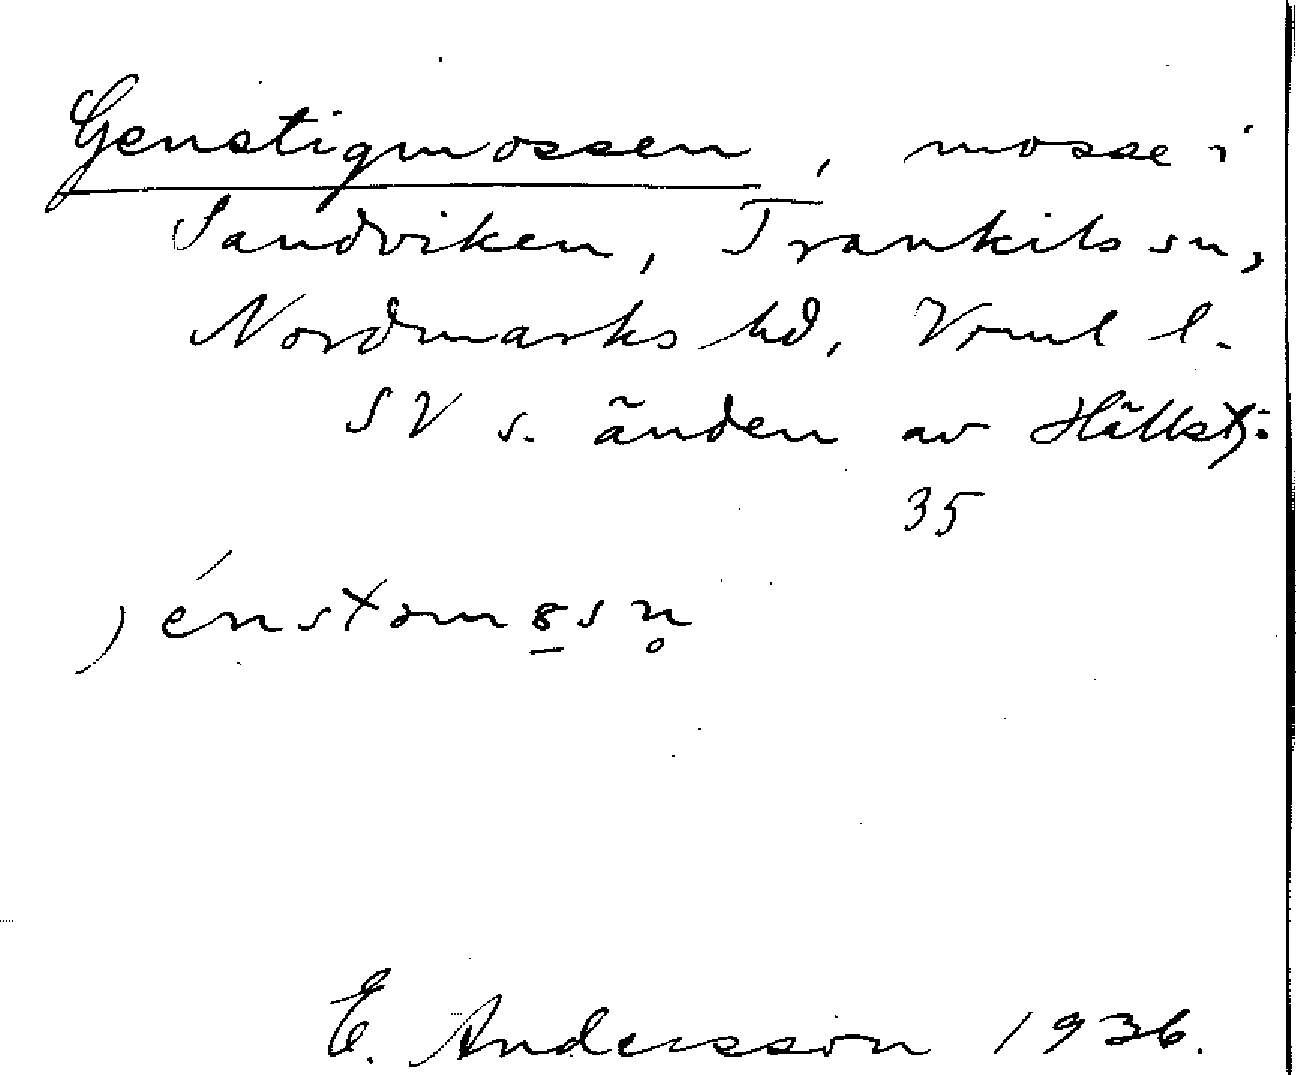 Genstigmossen, mosse i
Sandviken, Trankils sn,
Nordmarks hd, Vrml l.
SV s. änden av Hällstj:
35
E. Andersson 1936.